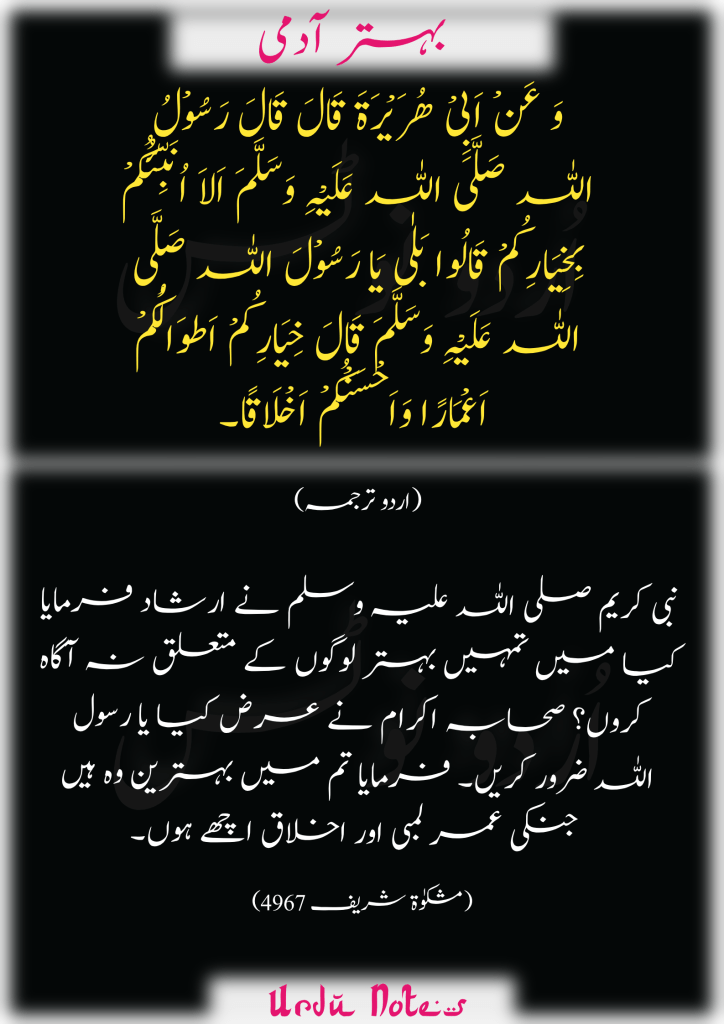 بہتر آدمی
وَ عَنْ اَبِیْ ھُرَیْرَۃَ قَالَ قَالَ رَسُوْلُ
اللہ صَلَّی اللہ عَلَیْہِ وَسَلَّمَ اَلاَ اُنَبِّئُکُمْ
بِخِیَارِکُمْ قَالُوا بَلٰی یَا رَسُوْلَ اللہ صَلَّی
اللہ عَلَیْہِ وَسَلَّمَ قَالَ خِیَارِکُمْ اَطوَالُکُمْ
اَعْمَارًا وَاَحْسَنُکُمْ اَخْلَاقًا۔
(اردو ترجمہ)
نبی کریم صلی اللہ علیہ وسلم نے ارشاد فرمایا
کیا میں تمہیں بہتر لوگوں کے متعلق نہ آگاہ
کروں؟ صحابہ اکرام نے عرض کیا یا رسول
اللہ ضرور کریں۔ فرمایا تم میں بہترین وہ ہیں
جنکی عمر لمبی اور اخلاق اچھے ہوں۔
(مشکوٰۃ شریف 4967)
Urdu Notes
اُردو نوٹس